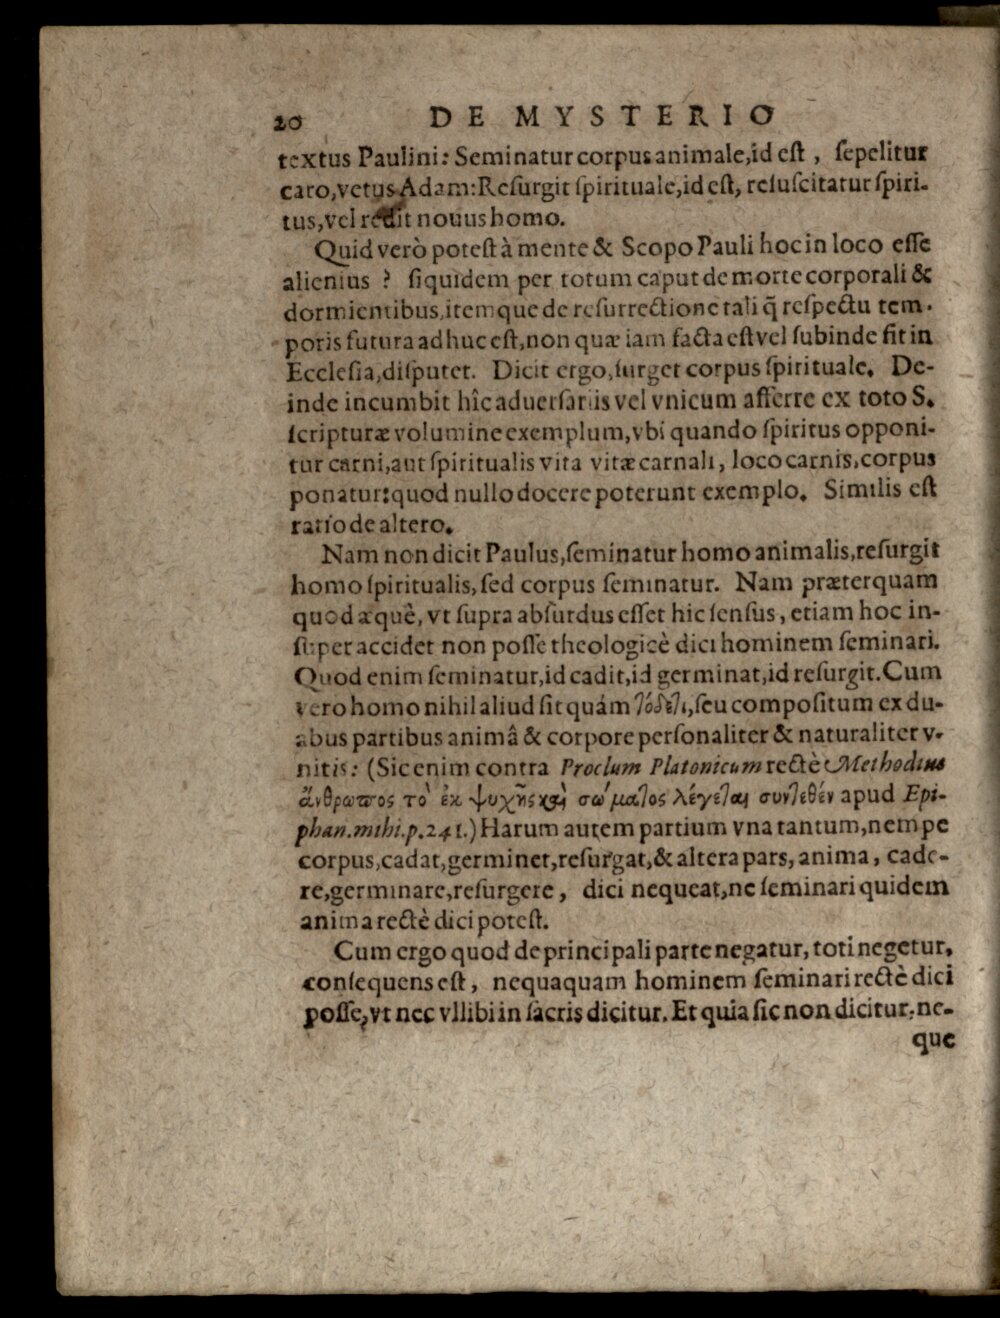 20 DE MYSTERIO
textus Paulini: Seminatur corpus animale, id eſt, ſepelitur
caro, vetus Adam: Reſurgit ſpirituale, id eſt, reſuſcitatur ſpiri-
tus, vel redit nouus homo.
Quid verò poteſt à mente & Scopo Pauli hoc in loco eſſe
alienius ? ſiquidem per totum caput de morte corporali &
dormientibus, itemque de reſurrectione tali q̃ reſpectu tem-
poris futura adhuc eſt, non quæ iam facta eſt vel ſubinde fit in
Eccleſia, diſputet. Dicit ergo, ſurget corpus ſpirituale. De-
inde incumbit hîc aduerſariis vel vnicum afferre ex toto S.
ſcripturæ volumine exemplum, vbi quando ſpiritus opponi-
tur carni, aut ſpiritualis vita vitæ carnali, loco carnis, corpus
ponatur: quod nullo docere poterunt exemplo. Similis eſt
ratio de altero.
Nam non dicit Paulus, ſeminatur homo animalis, reſurgit
homo ſpiritualis, ſed corpus ſeminatur. Nam præterquam
quod æquè, vt ſupra abſurdus eſſet hic ſenſus, etiam hoc in-
ſuper accidet non poſſe theologicè dici hominem ſeminari.
Quod enim ſeminatur, id cadit, id germinat, id reſurgit. Cum
vero homo nihil aliud ſit quám ſeu compoſitum ex du-
abus partibus animâ & corpore perſonaliter & naturaliter v-
nitis: (Sic enim contra Proclum Platonicum rectè Methodius
ἄνθρωπος τὸ ἐκ ψυχῆς καὶ σώματος λέγεται συντεθέν apud Epi-
phan. mihi. p. 241.) Harum autem partium vna tantum, nempe
corpus, cadat, germinet, reſurgat, & altera pars, anima, cade-
re, germinare, reſurgere, dici nequeat, ne ſeminari quidem
anima rectè dici poteſt.
Cum ergo quod de principali parte negatur, toti negetur,
conſequens eſt, nequaquam hominem ſeminari rectè dici
poſſe, vt nec vllibi in ſacris dicitur. Et quia ſic non dicitur, ne-
que